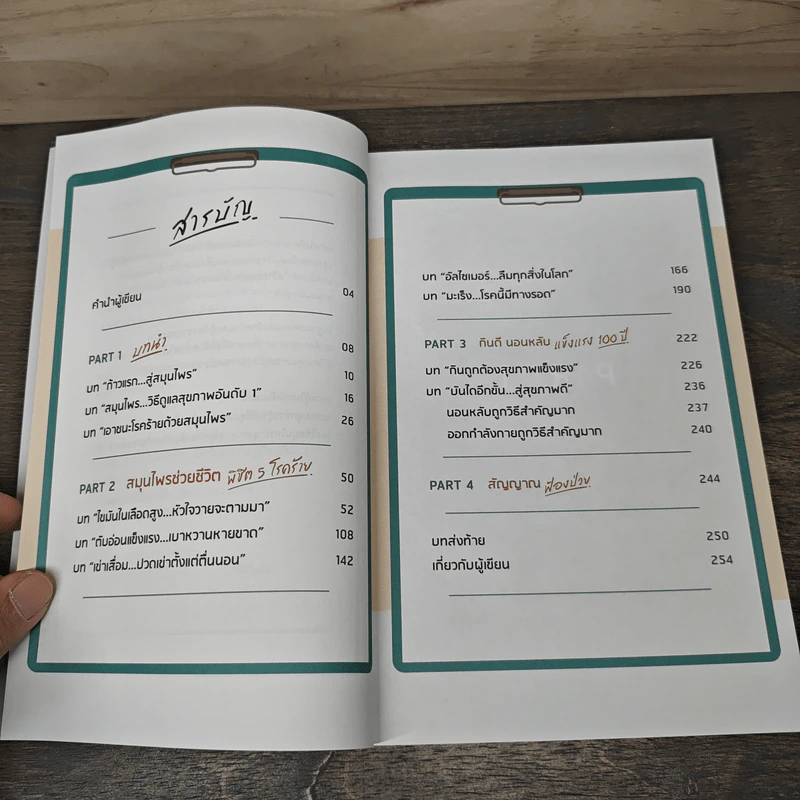 สารบัญ
คำนำผู้เขียน 04
PART 1 บทนำ 08
บท "ก้าวแรก...สู่สมุนไพร" 10
บท "สมุนไพร...วิธีดูแลสุขภาพอันดับ 1" 16
บท "เอาชนะโรคร้ายด้วยสมุนไพร" 26
PART 2 สมุนไพรช่วยชีวิต พิชิต 5 โรคร้าย 50
บท "ไขมันในเลือดสูง...หัวใจวายจะตามมา" 52
บท "ตับอ่อนแข็งแรง...เบาหวานหายขาด" 108
บท "เข่าเสื่อม...ปวดเข่าตั้งแต่ตื่นนอน" 142
บท "อัลไซเมอร์...ลืมทุกสิ่งในโลก" 166
บท "มะเร็ง...โรคนี้มีทางรอด" 190
PART 3 กินดี นอนหลับ แข็งแรง 100 ปี 222
บท "กินถูกต้องสุขภาพแข็งแรง" 226
บท "บันไดอีกขั้น...สู่สุขภาพดี" 236
นอนหลับถูกวิธีสำคัญมาก 237
ออกกำลังกายถูกวิธีสำคัญมาก 240
PART 4 สัญญาณ ฟ้องป่วย 244
บทส่งท้าย 250
เกี่ยวกับผู้เขียน 254